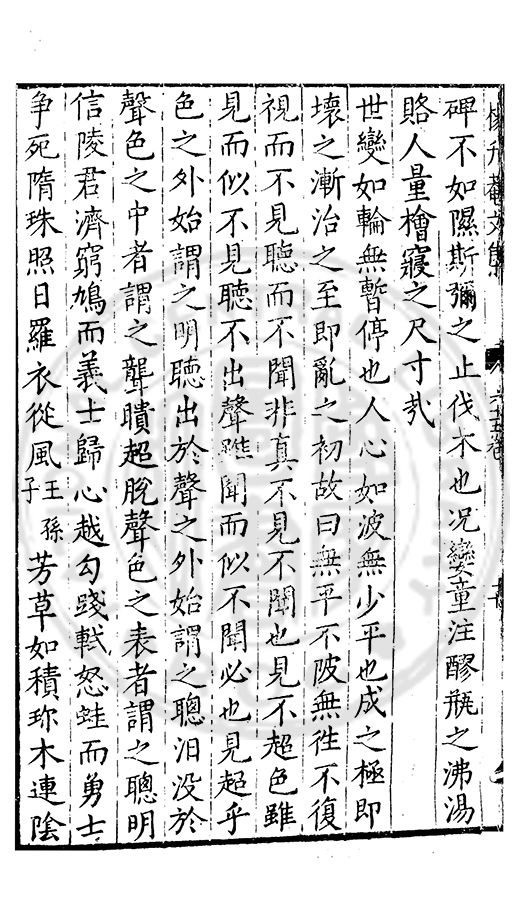 楊升菴文集
六十五卷
碑不如隰斯彌之止伐木也况孌童注醪瓶之沸湯
賂人量檜寢之尺寸㢤
世變如輪無暫停也人心如波無少平也成之極即
壞之漸治之至即亂之初故曰無平不陂無徃不復
視而不見聽而不聞非真不見不聞也見不超色雖
見而似不見聽不出聲雖聞而似不聞必也見超乎
色之外始謂之明聽出於聲之外始謂之聰汨没於
聲色之中者謂之聾瞶超脫聲色之表者謂之聰明
信陵君濟窮鳩而義士歸心越勾踐軾怒蛙而勇士
争死隋珠照日羅衣從風王孫子芳草如積珎木連陰